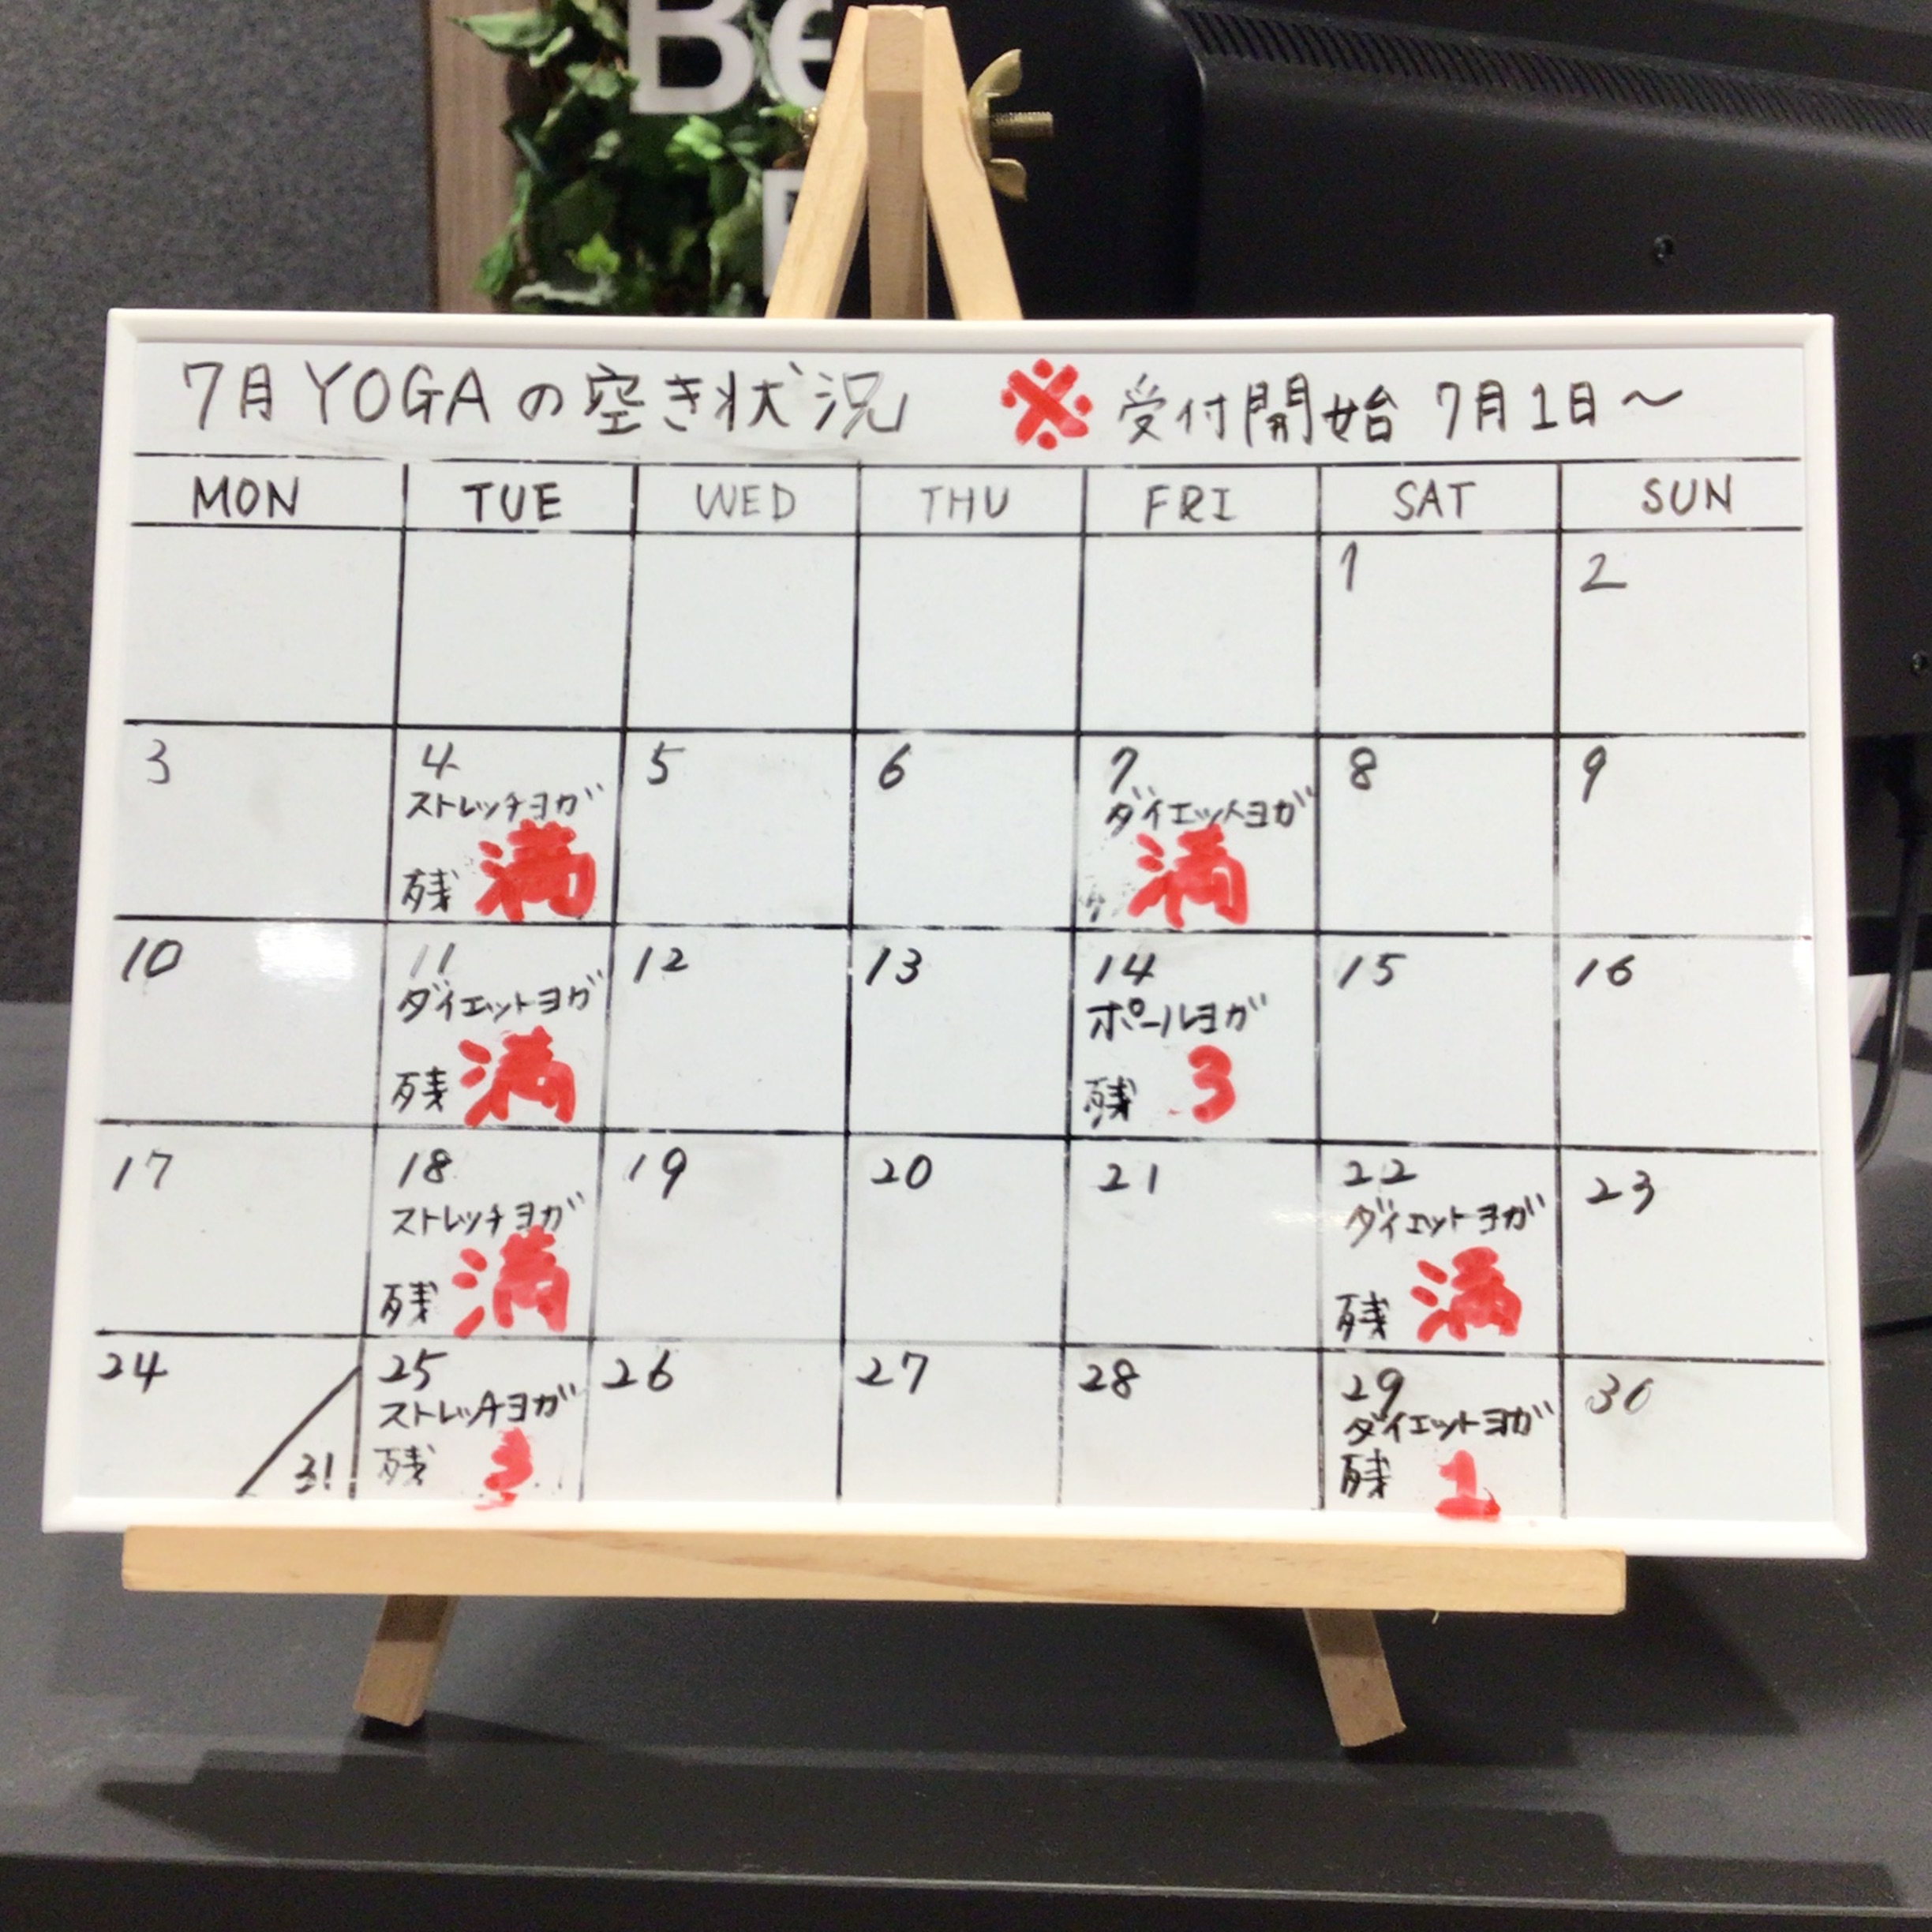 Be
7月 YOGA の空き状況 ※ 受付開始 7月1日〜
MON TUE WED THU FRI SAT SUN
1 2
3 4 5 6 7 8 9
ストレッチヨガ ダイエットヨガ
残 満 満
10 11 12 13 14 15 16
ダイエットヨガ ポールヨガ
残 満 残 3
17 18 19 20 21 22 23
ストレッチヨガ ダイエットヨガ
残 満 残 満
24 25 26 27 28 29 30
ストレッチヨガ ダイエットヨガ
31 残 3 残 1